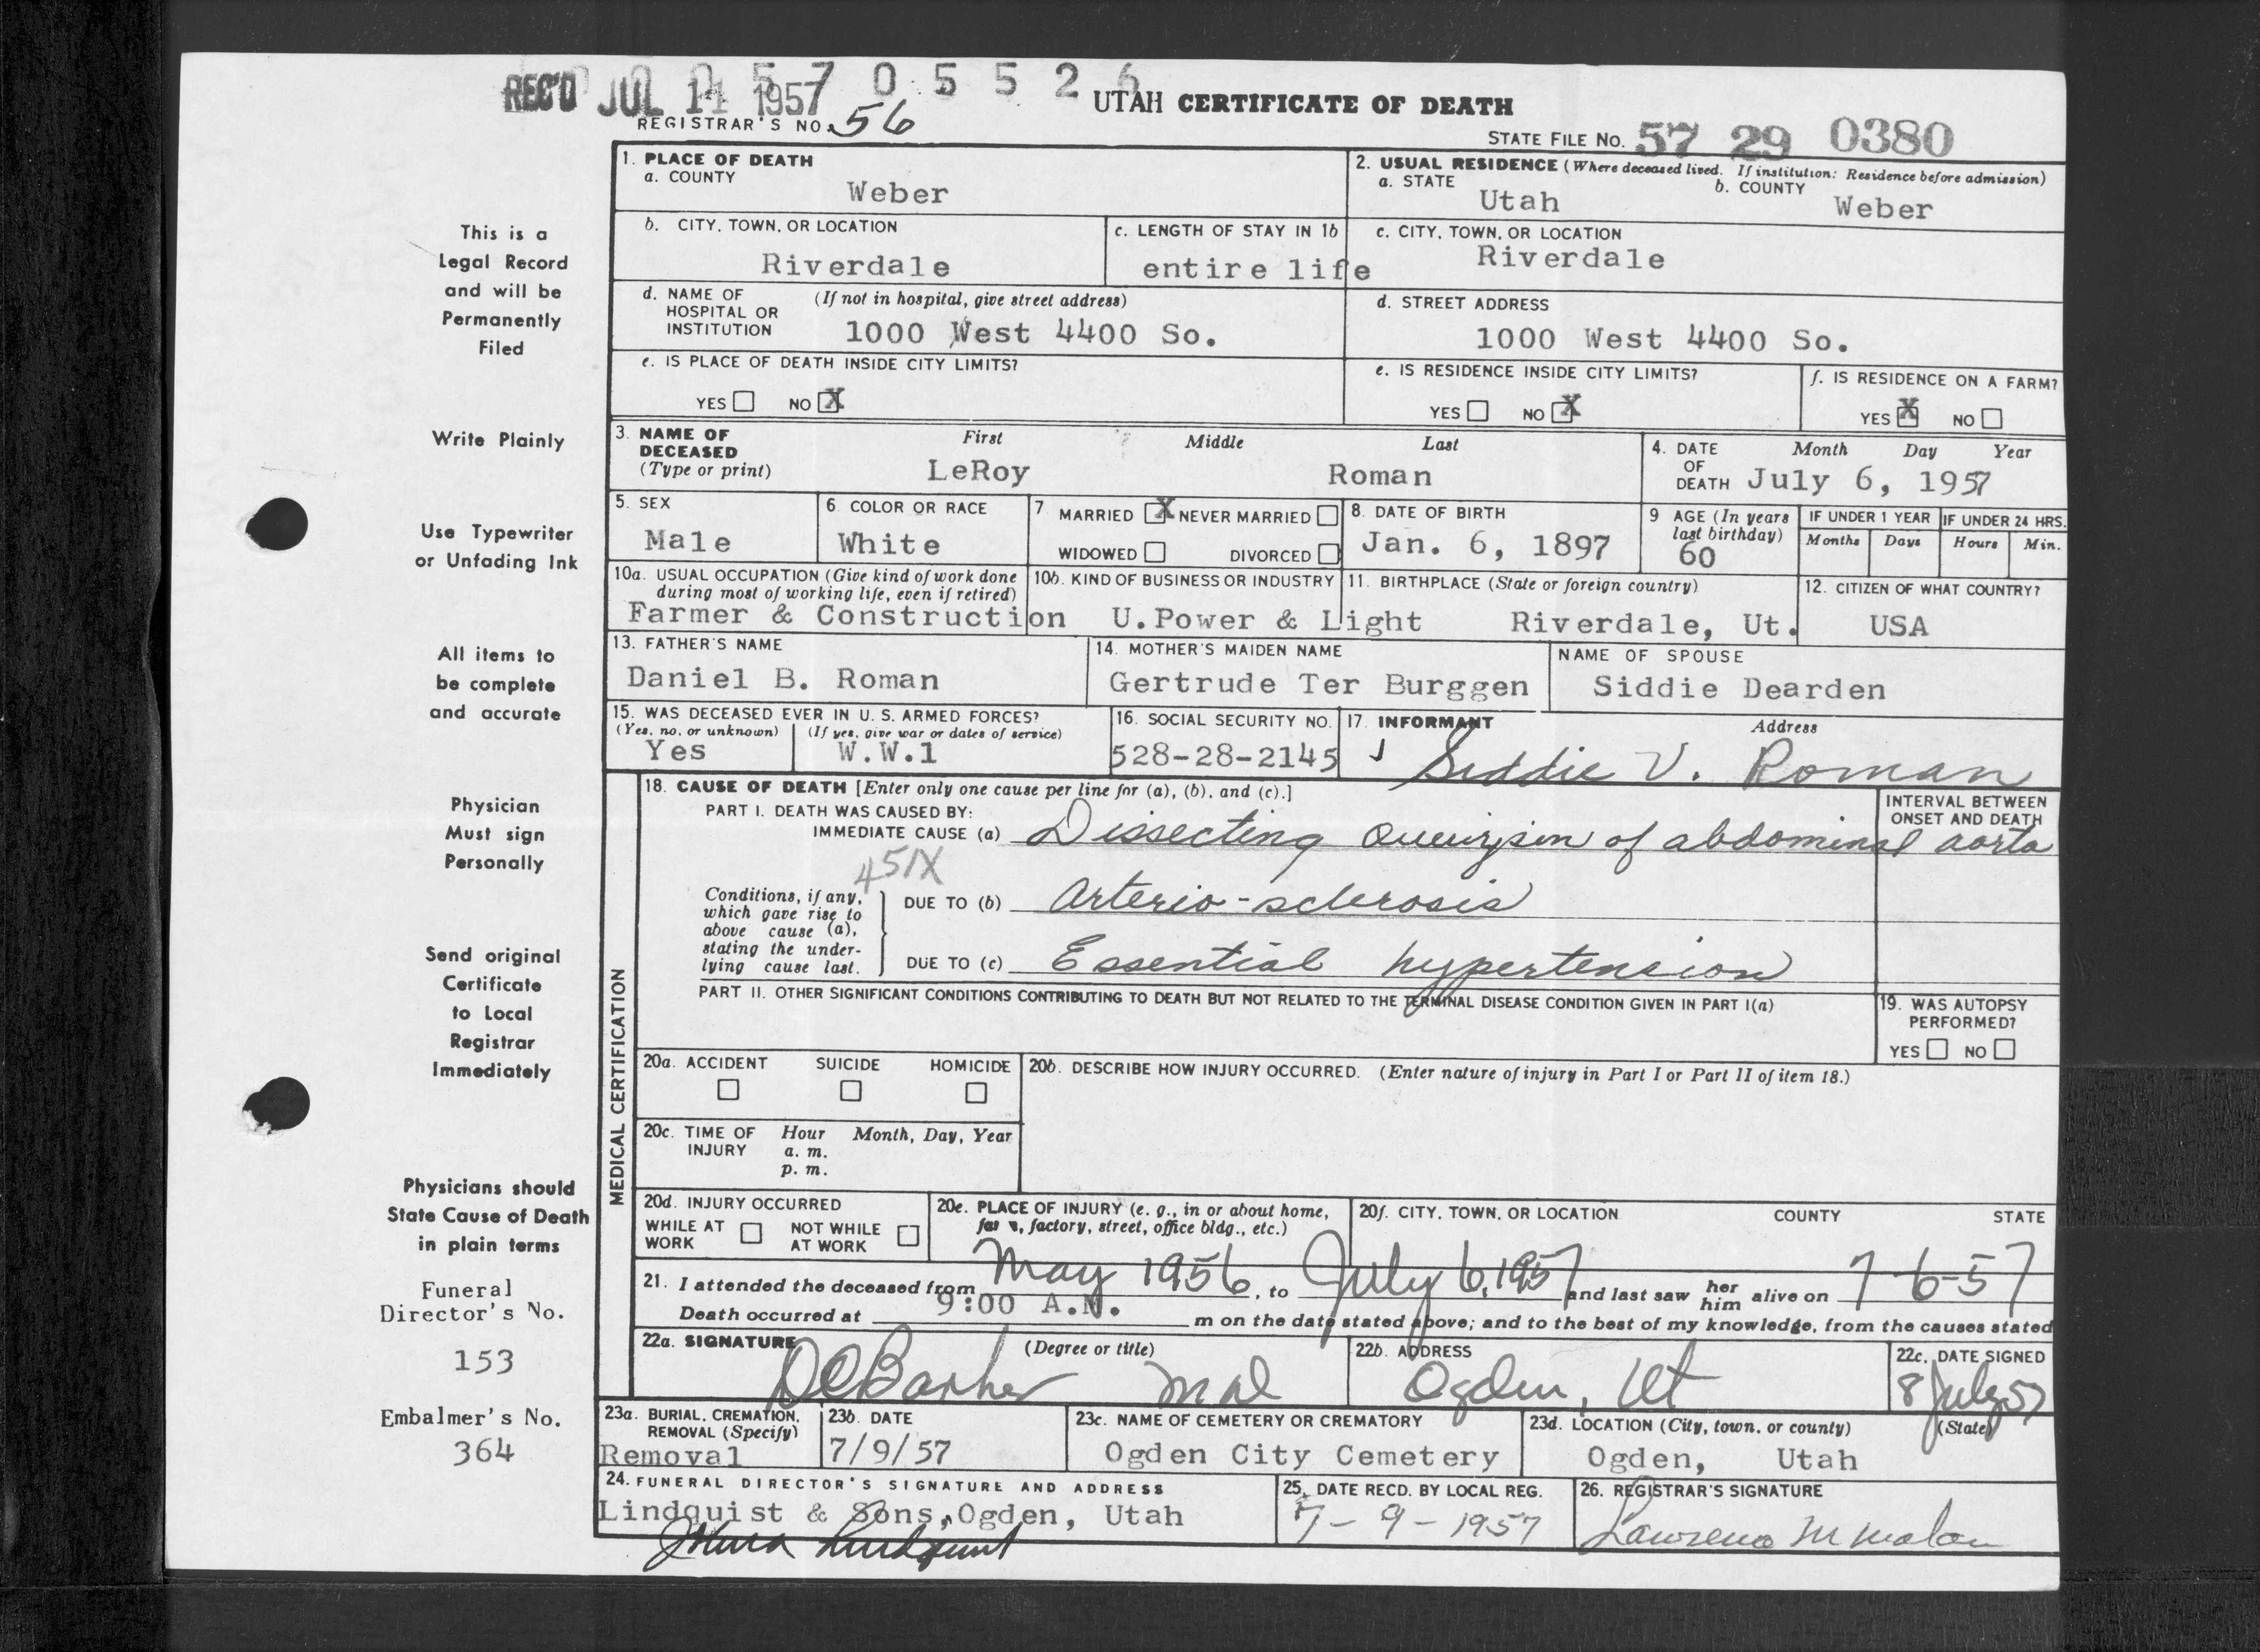 REC'D JUL 11 1957 0 5 5 2 6
UTAH CERTIFICATE OF DEATH
REGISTRAR'S NO. 56
STATE FILE NO. 57 29 0380
This is a
Legal Record
and will be
Permanently
Filed
Write Plainly
Use Typewriter
or Unfading Ink
All items to
be complete
and accurate
Physician
Must sign
Personally
Send original
Certificate
to Local
Registrar
Immediately
Physicians should
State Cause of Death
in plain terms
Funeral
Director's No.
153
Embalmer's No.
364
1. PLACE OF DEATH
a. COUNTY
Weber
2. USUAL RESIDENCE (Where deceased lived. If institution: Residence before admission)
a. STATE b. COUNTY
Utah Weber
b. CITY, TOWN, OR LOCATION
Riverdale
c. LENGTH OF STAY IN 1b
entire life
c. CITY, TOWN, OR LOCATION
Riverdale
d. NAME OF (If not in hospital, give street address)
HOSPITAL OR
INSTITUTION 1000 West 4400 So.
d. STREET ADDRESS
1000 West 4400 So.
e. IS PLACE OF DEATH INSIDE CITY LIMITS?
YES NO X
e. IS RESIDENCE INSIDE CITY LIMITS?
YES NO X
f. IS RESIDENCE ON A FARM?
YES X NO
3. NAME OF First Middle Last
DECEASED
(Type or print) LeRoy Roman
4. DATE Month Day Year
OF
DEATH July 6, 1957
5. SEX
Male
6. COLOR OR RACE
White
7. MARRIED X NEVER MARRIED
WIDOWED DIVORCED
8. DATE OF BIRTH
Jan. 6, 1897
9 AGE (In years
last birthday)
60
IF UNDER 1 YEAR IF UNDER 24 HRS.
Months Days Hours Min.
10a. USUAL OCCUPATION (Give kind of work done
during most of working life, even if retired)
Farmer & Construction
10b. KIND OF BUSINESS OR INDUSTRY
U.Power & Light
11. BIRTHPLACE (State or foreign country)
Riverdale, Ut.
12. CITIZEN OF WHAT COUNTRY?
USA
13. FATHER'S NAME
Daniel B. Roman
14. MOTHER'S MAIDEN NAME
Gertrude Ter Burggen
NAME OF SPOUSE
Siddie Dearden
15. WAS DECEASED EVER IN U. S. ARMED FORCES?
(Yes, no, or unknown) (If yes, give war or dates of service)
Yes W.W.1
16. SOCIAL SECURITY NO.
528-28-2145
17. INFORMANT Address
Siddie V. Roman
MEDICAL CERTIFICATION
18. CAUSE OF DEATH [Enter only one cause per line for (a), (b), and (c).]
PART I. DEATH WAS CAUSED BY:
IMMEDIATE CAUSE (a) Dissecting aneurysm of abdominal aorta
INTERVAL BETWEEN
ONSET AND DEATH
451X
Conditions, if any,
which gave rise to
above cause (a),
stating the under-
lying cause last.
DUE TO (b) Arterio-sclerosis
DUE TO (c) Essential hypertension
PART II. OTHER SIGNIFICANT CONDITIONS CONTRIBUTING TO DEATH BUT NOT RELATED TO THE TERMINAL DISEASE CONDITION GIVEN IN PART I(a)
19. WAS AUTOPSY
PERFORMED?
YES NO
20a. ACCIDENT SUICIDE HOMICIDE
20b. DESCRIBE HOW INJURY OCCURRED. (Enter nature of injury in Part I or Part II of item 18.)
20c. TIME OF Hour Month, Day, Year
INJURY a. m.
p. m.
20d. INJURY OCCURRED
WHILE AT NOT WHILE
WORK AT WORK
20e. PLACE OF INJURY (e. g., in or about home,
farm, factory, street, office bldg., etc.)
20f. CITY, TOWN, OR LOCATION COUNTY STATE
21. I attended the deceased from May 1956, to July 6, 1957 and last saw her him alive on 7-6-57
Death occurred at 9:00 A.M. m on the date stated above; and to the best of my knowledge, from the causes stated
22a. SIGNATURE (Degree or title)
D C Barker MD
22b. ADDRESS
Ogden, Ut
22c. DATE SIGNED
8 July 57
23a. BURIAL, CREMATION,
REMOVAL (Specify)
Removal
23b. DATE
7/9/57
23c. NAME OF CEMETERY OR CREMATORY
Ogden City Cemetery
23d. LOCATION (City, town, or county) (State)
Ogden, Utah
24. FUNERAL DIRECTOR'S SIGNATURE AND ADDRESS
Lindquist & Sons, Ogden, Utah
25. DATE RECD. BY LOCAL REG.
7-9-1957
26. REGISTRAR'S SIGNATURE
Lawrence M Malan